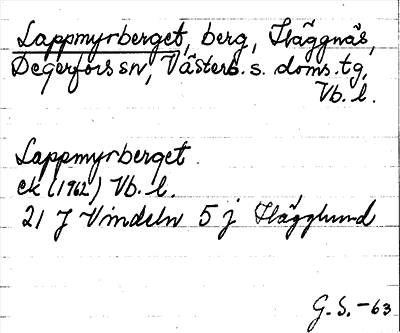 Lappmyrberget, berg, Häggnäs,
Degerfors sn, Västerb. s. doms. tg,
Vb. l.
Lappmyrberget.
ek (1962) Vb. l.
21 J Vindeln 5 j Hägglund
G. S. -63